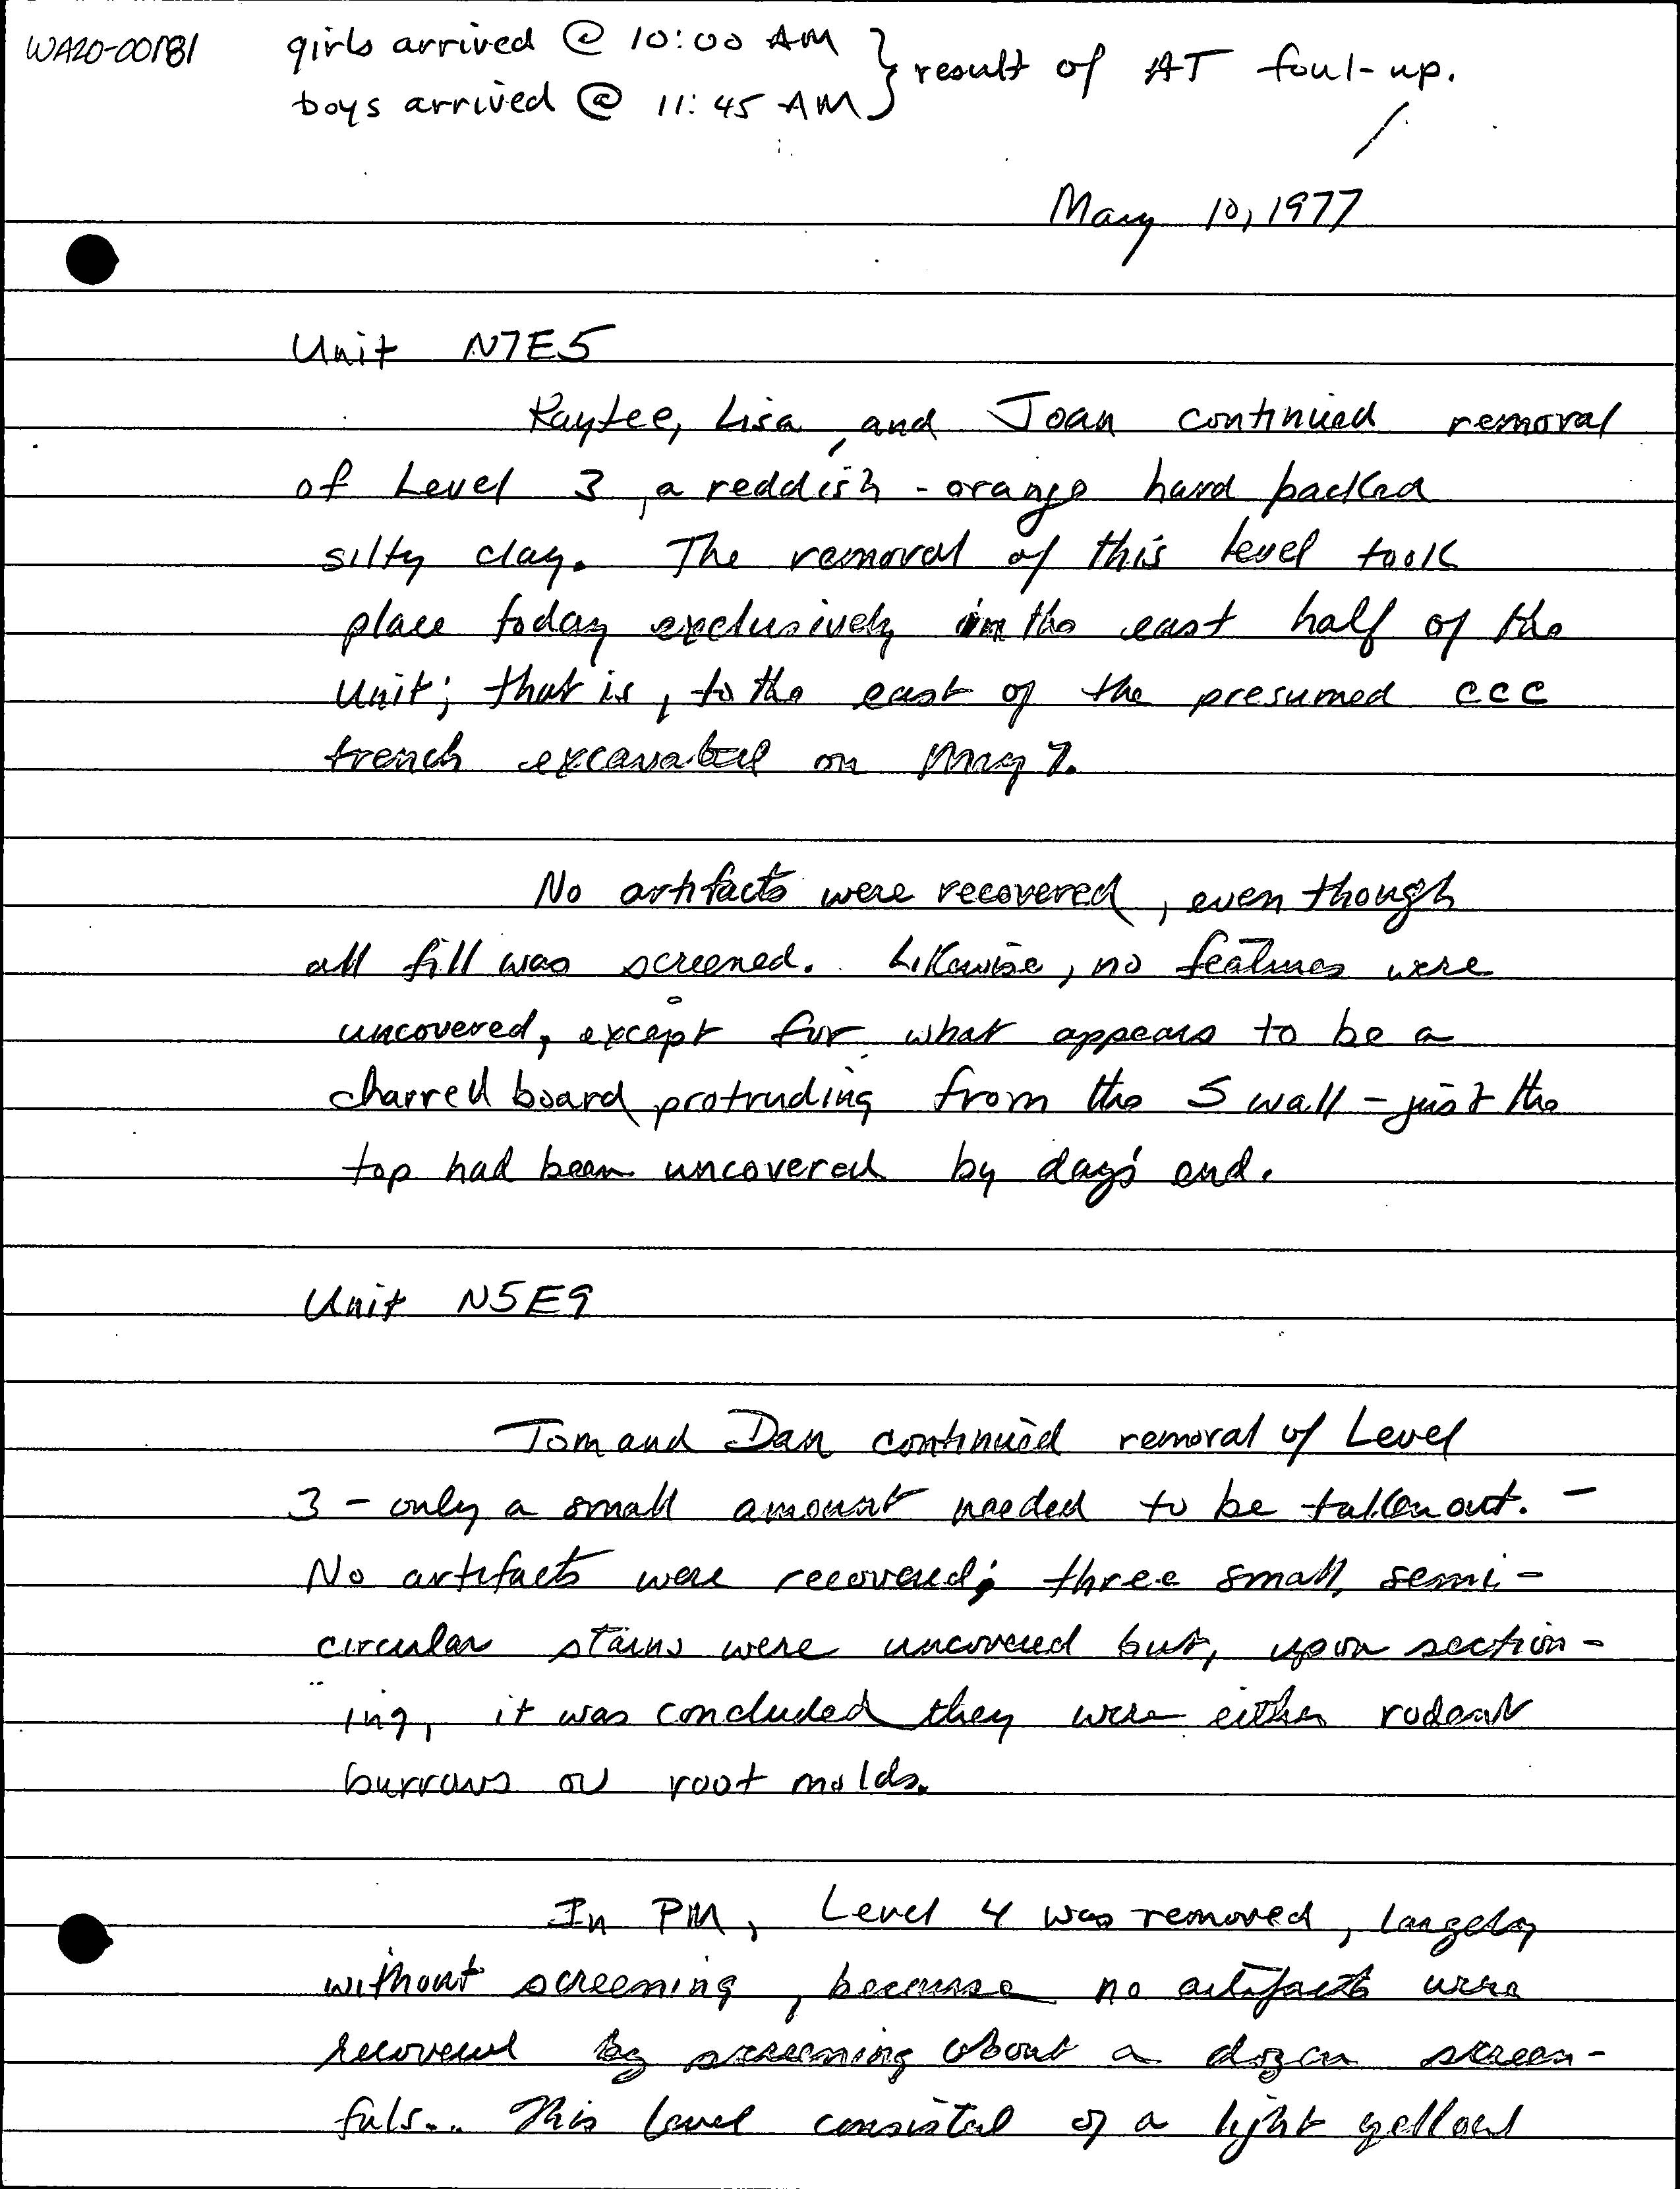 WA20-00181
girls arrived @ 10:00 AM } result of AT foul-up.
boys arrived @ 11:45 AM
May 10, 1977
Unit N7E5
Kaytee, Lisa, and Joan continued removal
of Level 3, a reddish-orange hard packed
silty clay. The removal of this level took
place today exclusively in the east half of the
Unit; that is, to the east of the presumed CCC
trench excavated on May 7.
No artifacts were recovered, even though
all fill was screened. Likewise, no features were
uncovered, except for what appears to be a
charred board protruding from the S wall - just the
top had been uncovered by day's end.
Unit N5E9
Tom and Dan continued removal of Level
3 - only a small amount needed to be taken out. -
No artifacts were recovered; three small, semi-
circular stains were uncovered but, upon section-
ing, it was concluded they were either rodent
burrows or root molds.
In PM, Level 4 was removed, largely
without screening, because no artifacts were
recovered by screening about a dozen screen-
fuls... This level consisted of a light yellow